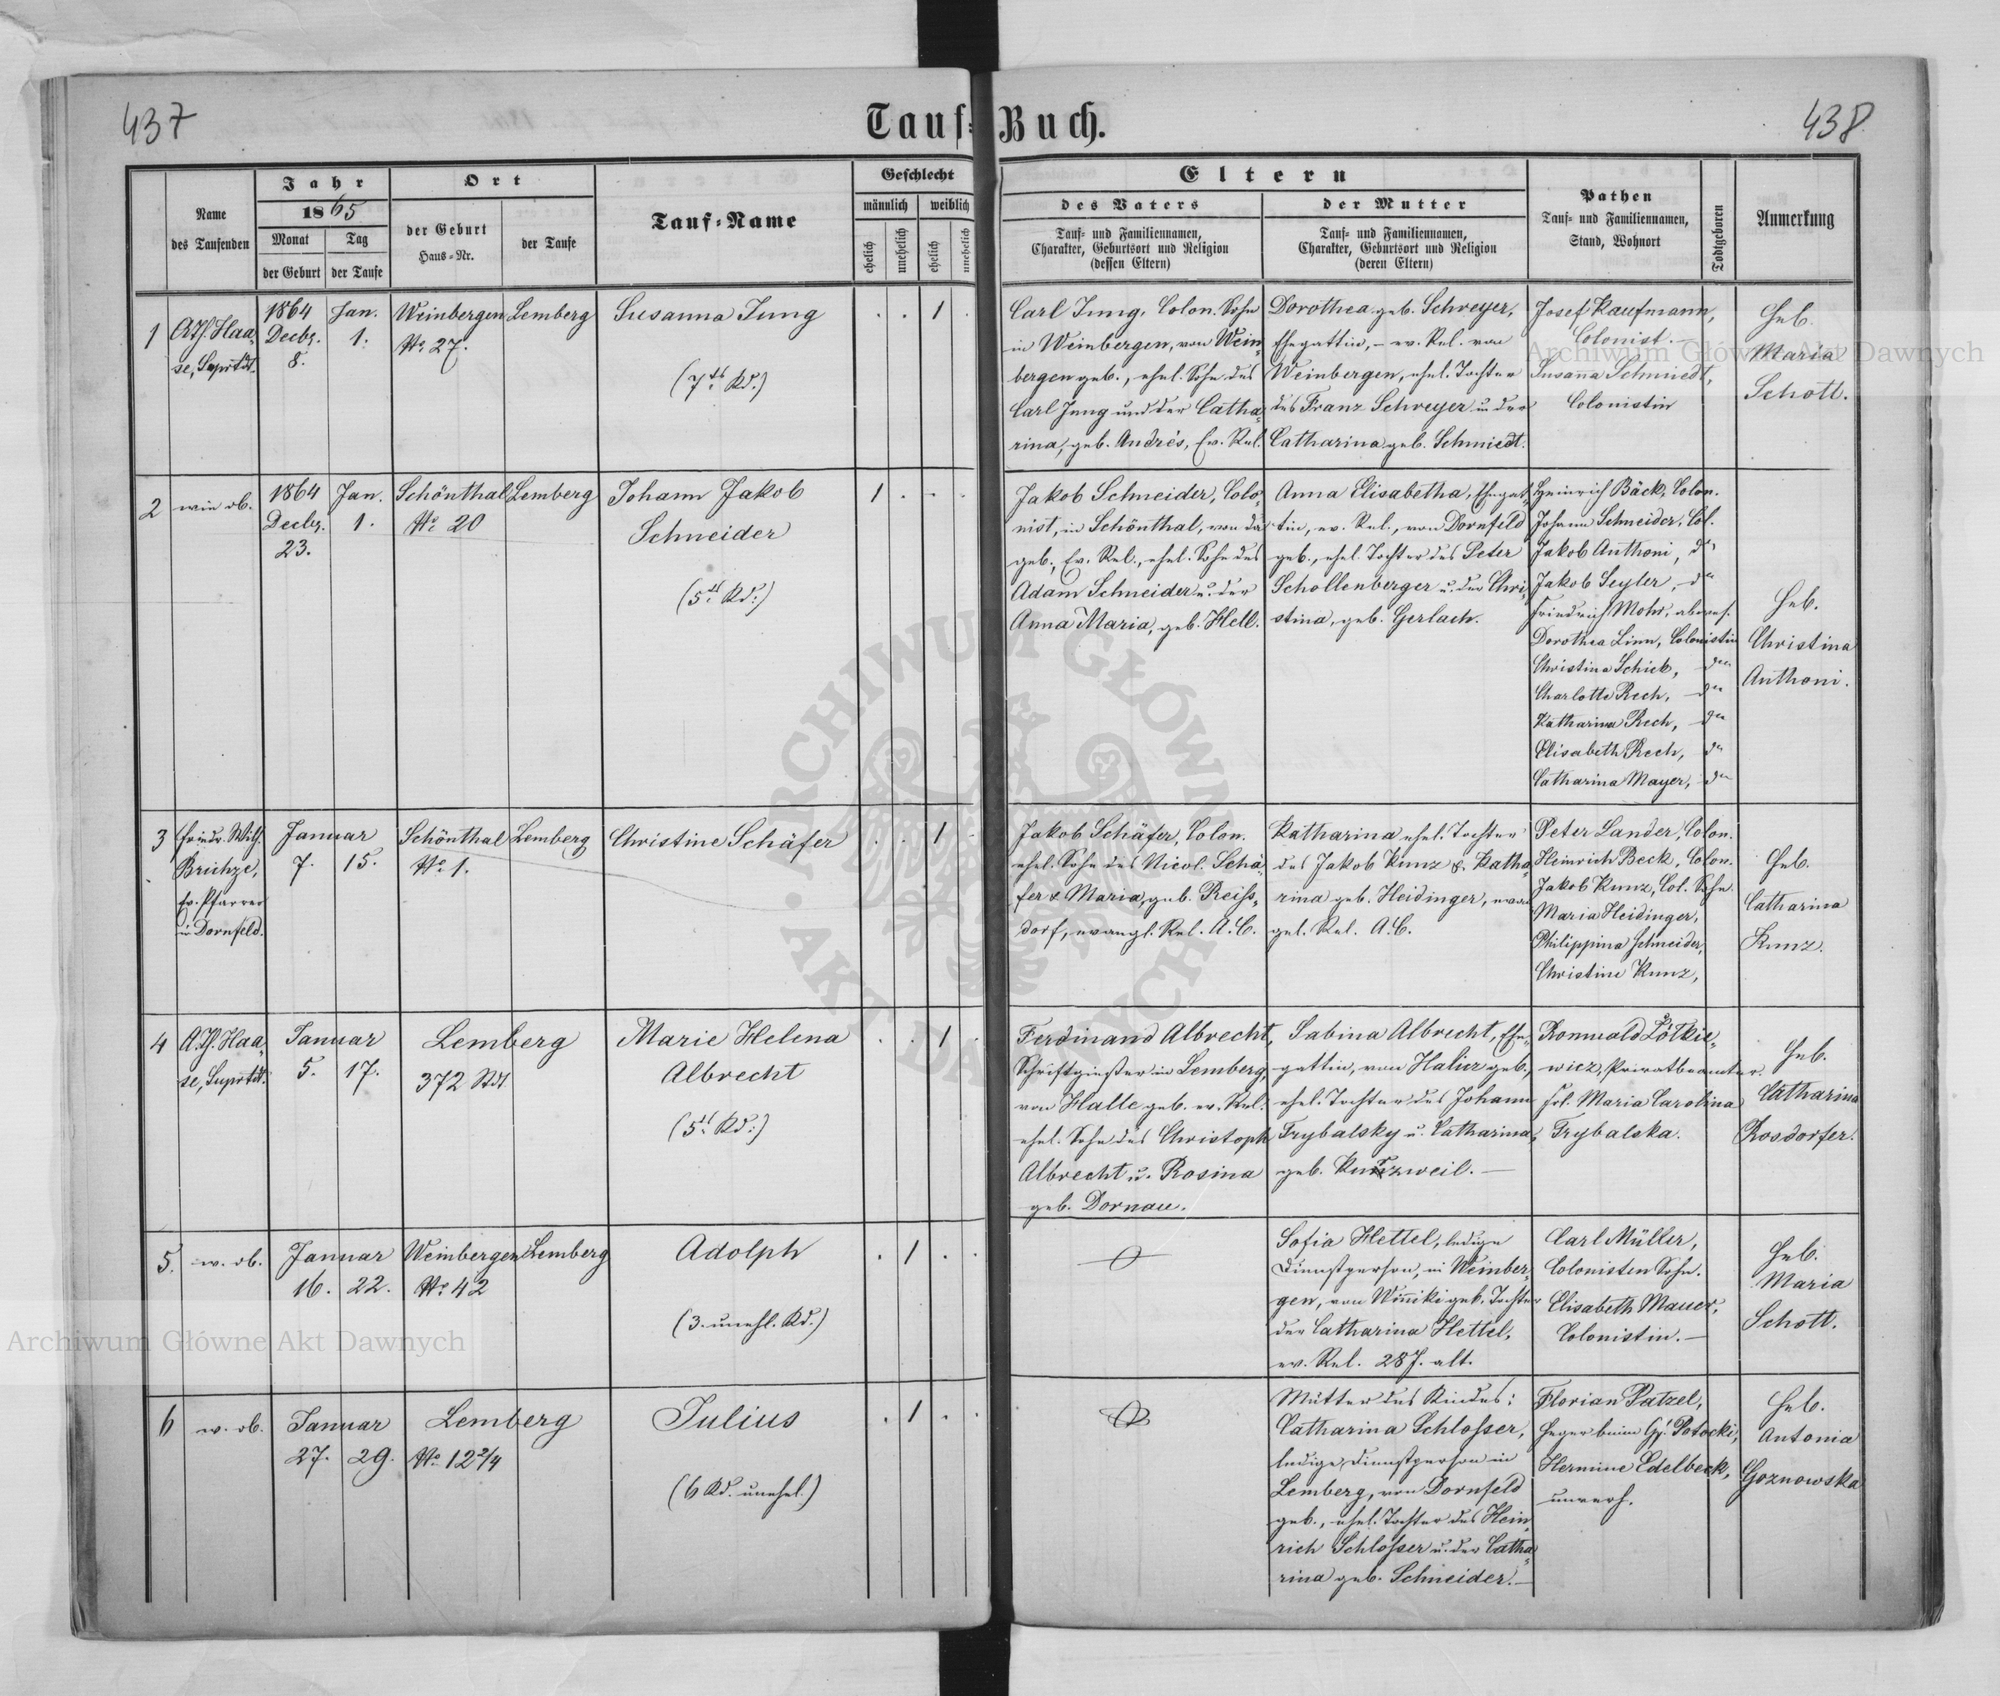 437
Tauf-Buch.
438
Name
des Taufenden
Jahr
1865
Monat
der Geburt
Tag
der Taufe
Ort
der Geburt
Haus-Nr.
der Taufe
Tauf-Name
Geschlecht
männlich
weiblich
ehelich
unehelich
ehelich
unehelich
Eltern
des Vaters
Tauf- und Familiennamen,
Charakter, Geburtsort und Religion
(dessen Eltern)
der Mutter
Tauf- und Familiennamen,
Charakter, Geburtsort und Religion
(deren Eltern)
Pathen
Tauf- und Familiennamen,
Stand, Wohnort
Todtgeboren
Anmerkung
1
Haa-
se, Suprtdt.
1864
Decbr.
8.
Jan.
1.
Weinbergen
No 27.
Lemberg
Susanna Jung
(7tes Kd.)
1
Carl Jung, Colon. Sohn
in Weinbergen, von Wein-
bergen geb., ehel. Sohn des
Carl Jung und der Catha-
rina, geb. Andrés, Ev. Rel.
Dorothea geb. Schreyer,
Ehegattin, – ev. Rel. von
Weinbergen, ehel. Tochter
des Franz Schreyer u. der
Catharina geb. Schmiedt.
Josef Kaufmann,
Colonist. –
Susanna Schmiedt,
Colonistin
Heb.
Maria
Schott.
2
wie ob.
1864
Decbr.
23.
Jan.
1.
Schönthal
No 20
Lemberg
Johann Jakob
Schneider
(5tes Kd.)
1
Jakob Schneider, Colo-
nist, in Schönthal, von da
geb., Ev. Rel., ehel. Sohn des
Adam Schneider u. der
Anna Maria, geb. Hell.
Anna Elisabetha, Ehegat-
tin, ev. Rel., von Dornfeld
geb., ehel. Tochter des Peter
Schollenberger u. der Chri-
stina, geb. Gerlach.
Heinrich Bäck, Colon.
Johann Schneider, Col.
Jakob Anthoni, do
Jakob Seyler, do
Friedrich Mohr, abwes.
Dorothea Linn, Colonistin
Christina Schick, do
Charlotte Rech, do
Katharina Rech, do
Elisabeth Rech, do
Catharina Mayer, do
Heb.
Christina
Anthoni.
3
Friedr. Wilh.
Ev. Pfarrer
in Dornfeld.
Januar
7. 15.
Schönthal
No 1.
Lemberg
Christine Schäfer
1
Jakob Schäfer, Colon.
ehel. Sohn des Nicol. Schä-
fer & Maria, geb. Reiss-
dorf, evangl. Rel. A.C.
Katharina ehel. Tochter
des Jakob Kunz & Katha-
rina geb. Heidinger, evan-
gel. Rel. A.C.
Peter Lander, Colon.
Heinrich Beck, Colon.
Jakob Kunz, Col. Sohn
Maria Heidinger,
Philippina Schneider,
Christine Kunz,
Heb.
Catharina
Kunz.
4
Haa-
se, Suprtdt.
Januar
5. 17.
Lemberg
372 Stdt.
Marie Helena
Albrecht
(5tes Kd.)
1
Ferdinand Albrecht,
Schriftgießer in Lemberg,
von Halle geb. ev. Rel.
ehel. Sohn des Christoph
Albrecht u. Rosina
geb. Dornau.
Sabina Albrecht, Ehe-
gattin, von Halicz geb.,
ehel. Tochter des Johann
Trybalsky u. Catharina,
geb. Kurzweil. –
Romuald Żótkie-
wicz, Privatbeamter.
Frl. Maria Carolina
Trybalska.
Heb.
Catharina
Rosdorfer.
5.
w. ob.
Januar
16. 22.
Weinbergen
No 42
Lemberg
Adolph
(3. unehl. Kd.)
1
Sofia Hettel, ledige
Dienstperson, in Weinber-
gen, von Winniki geb. Tochter
der Catharina Hettel,
ev. Rel. 28 J. alt.
Carl Müller,
Colonisten Sohn.
Elisabeth Mauer,
Colonistin. –
Heb.
Maria
Schott.
6
w. ob.
Januar
27. 29.
Lemberg
No 12 2/4
Julius
(6 Kd. unehel.)
1
Mutter des Kindes:
Catharina Schlosser,
ledige Dienstperson in
Lemberg, von Dornfeld
geb., ehel. Tochter des Hein-
rich Schlosser u. der Catha-
rina geb. Schneider. –
Florian Patzel,
Heger beim Gf. Potocki,
Hermine Edelbeck,
unverh.
Heb.
Antonia
Goznowska
Archiwum Główne Akt Dawnych
Archiwum Główne Akt Dawnych
ARCHIWUM GŁÓWNE AKT DAWNYCH